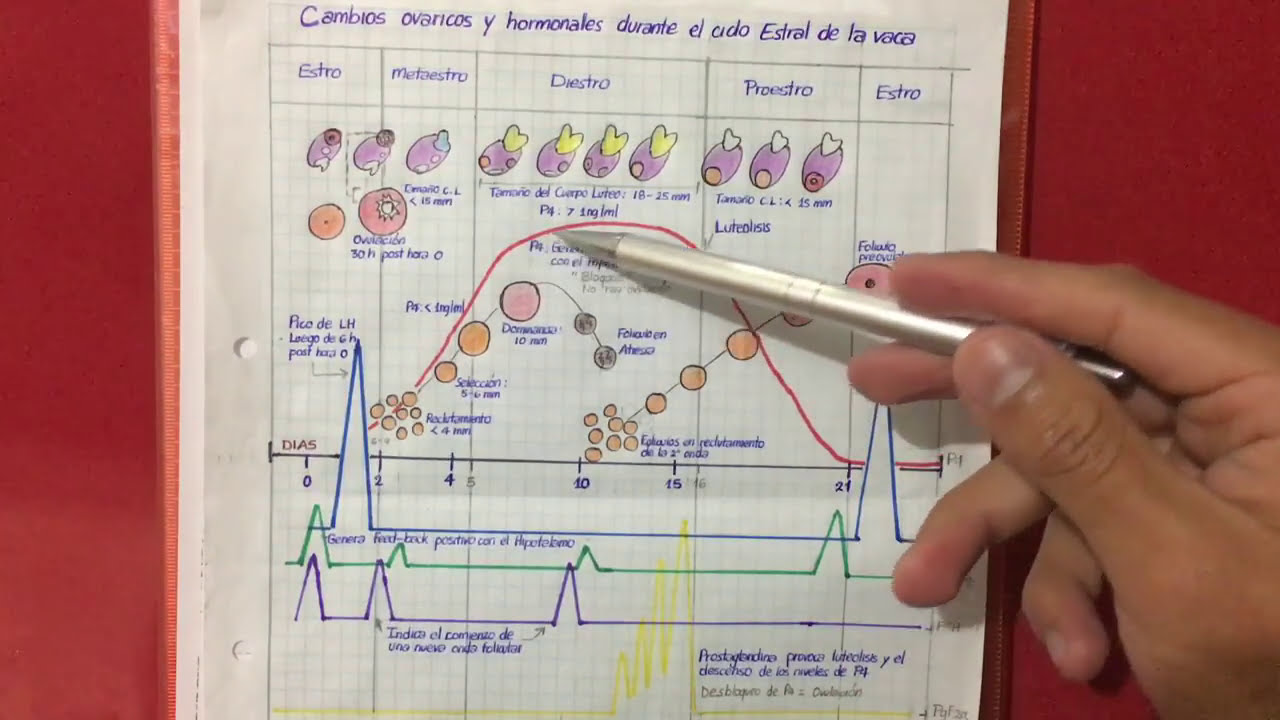 Cambios ovaricos y hormonales durante el ciclo Estral de la vaca
Estro
Metaestro
Diestro
Proestro
Estro
Tamaño C.L
< 15 mm
Tamaño del Cuerpo Luteo: 18-25 mm
P4: > 1ng/ml
Tamaño C.L: < 15 mm
Ovulación
30 h post hora 0
Luteolisis
P4: Gene
con el
"Bloq
No hay
Foliculo
preovul
P4: < 1ng/ml
Pico de LH
Luego de 6 h
post hora 0
Dominancia:
10 mm
Foliculo en
Atresia
Selección:
5-6 mm
Reclutamiento
< 4 mm
Foliculos en reclutamiento
de la 2ª onda
DIAS
0
2
4
5
10
15
16
21
P4
Genera feed-back positivo con el Hipotalamo
Indica el comienzo de
una nueva onda folicular
Prostaglandina provoca luteolisis y el
descenso de los niveles de P4
Desbloqueo de P4 = Ovulación
PgF2α